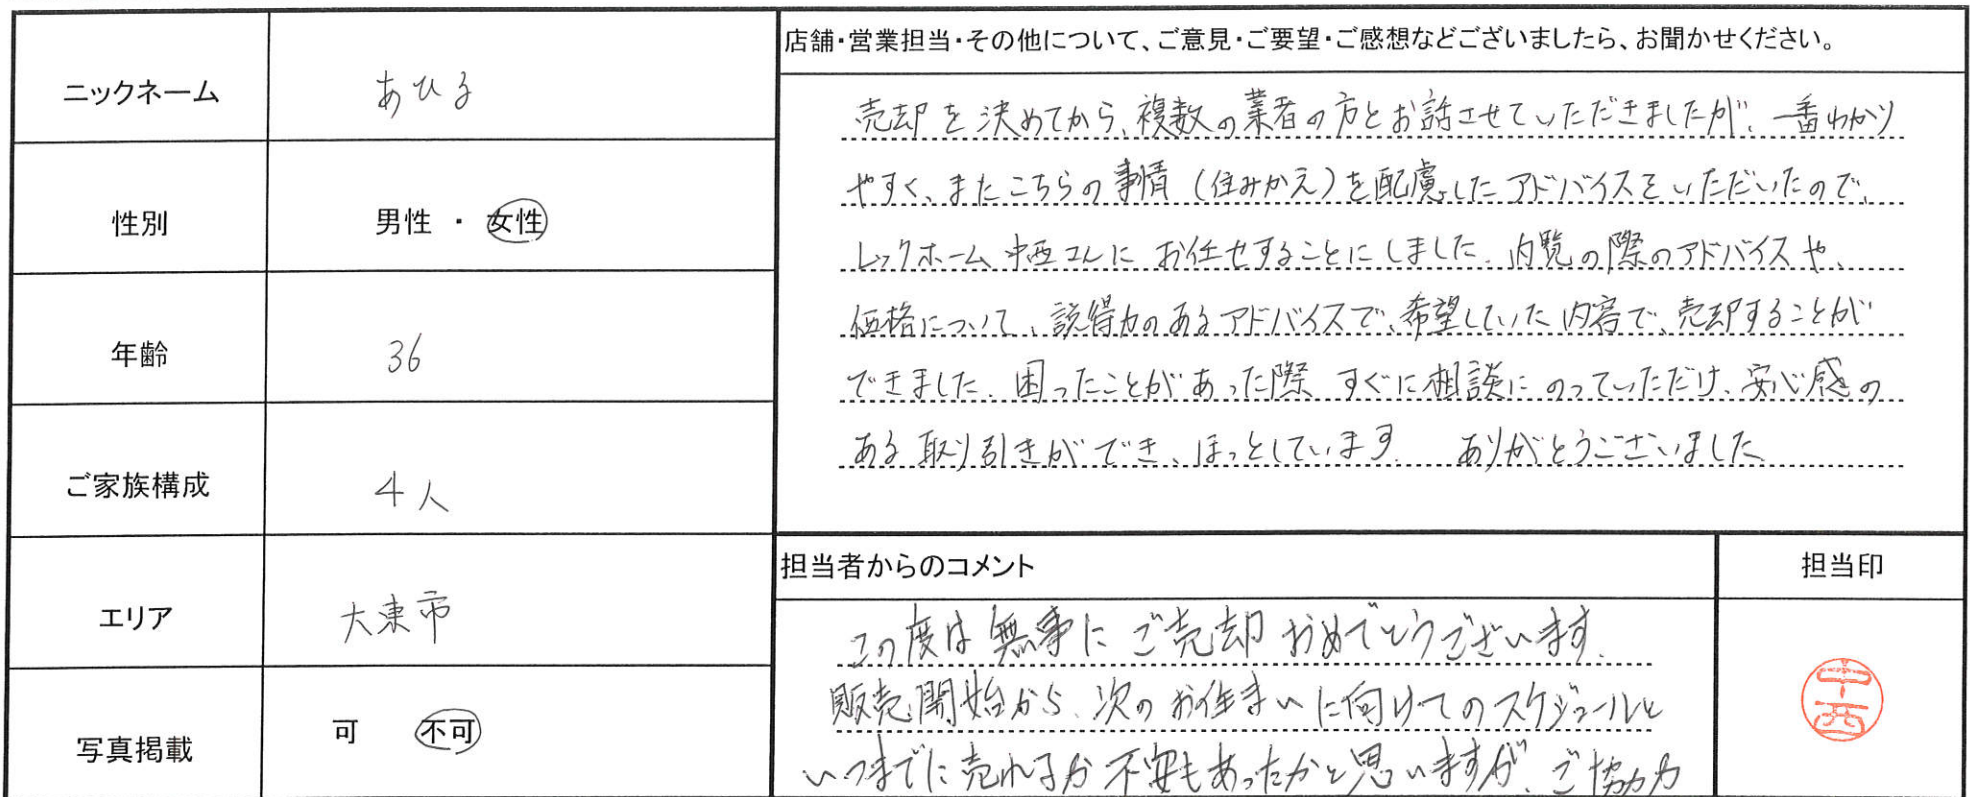 ニックネーム あひる
性別 男性 ・ 女性
年齢 36
ご家族構成 4人
エリア 大東市
写真掲載 可 不可
店舗・営業担当・その他について、ご意見・ご要望・ご感想などございましたら、お聞かせください。
売却を決めてから、複数の業者の方とお話させていただきましたが、一番わかり
やすく、またこちらの事情(住みかえ)を配慮したアドバイスをいただいたので、
レックホーム 中西さんに お任せすることにしました。内覧の際のアドバイスや、
価格について、説得力のあるアドバイスで、希望していた内容で、売却することが
できました。困ったことがあった際 すぐに相談にのっていただけ、安心感の
ある取り引きができ、ほっとしています。 ありがとうございました
担当者からのコメント
この度は無事にご売却おめでとうございます。
販売開始から、次のお住まいに向けてのスケジュールと
いつまでに売れるか不安もあったかと思いますが、ご協力
担当印
中西